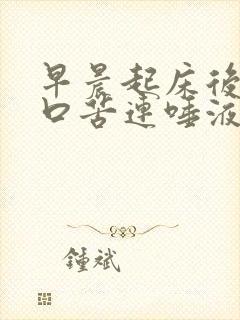 早晨起床後
口苦連唾液
鍾斌